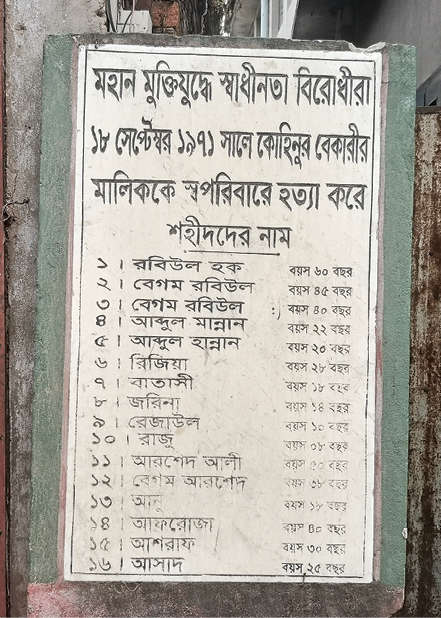 মহান মুক্তিযুদ্ধে স্বাধীনতা বিরোধীরা
১৮ সেপ্টেম্বর ১৯৭১ সালে কোহিনুর বেকারীর
মালিককে স্বপরিবারে হত্যা করে
শহীদদের নাম
১। রবিউল হক বয়স ৬০ বছর
২। বেগম রবিউল বয়স ৪৫ বছর
৩। বেগম রবিউল বয়স ৪০ বছর
৪। আব্দুল মান্নান বয়স ২২ বছর
৫। আব্দুল হান্নান বয়স ২০ বছর
৬। রিজিয়া বয়স ২৮ বছর
৭। বাতাসী বয়স ১৮ বছর
৮। জরিনা বয়স ১৪ বছর
৯। রেজাউল বয়স ১০ বছর
১০। রাজু বয়স ০৮ বছর
১১। আরশেদ আলী বয়স বছর
১২। বেগম আরশেদ বয়স বছর
১৩। আনু বয়স ১৮ বছর
১৪। আফরোজা বয়স ৪০ বছর
১৫। আশরাফ বয়স ৩০ বছর
১৬। আসাদ বয়স ২৫ বছর